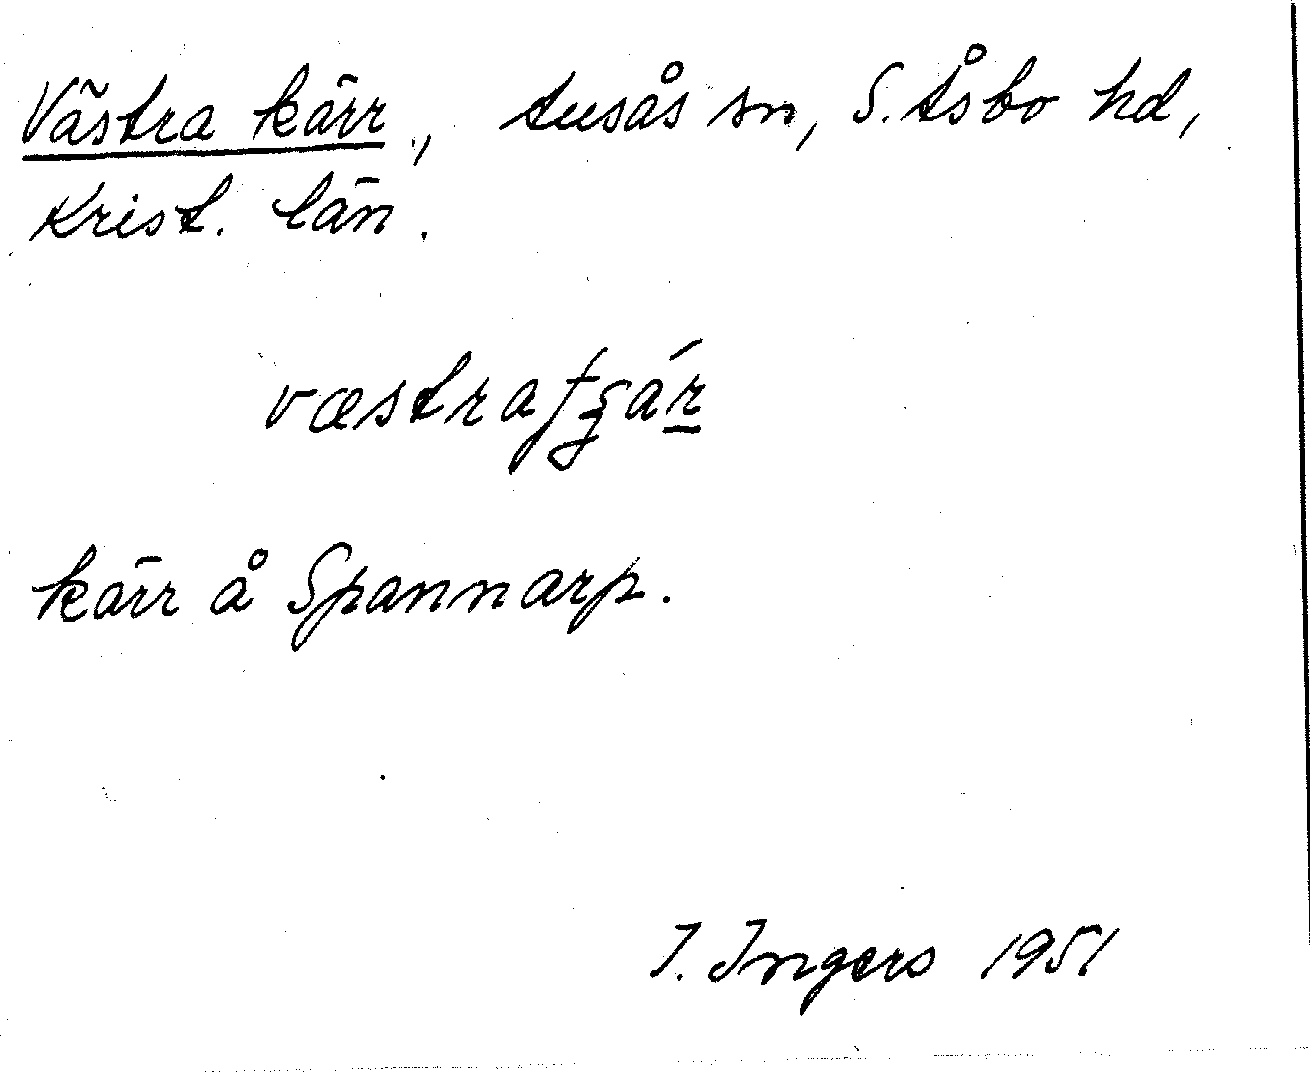 Västra kärr, Ausås sn, S. Åsbo hd,
Krist. län.
væstra
kärr å Spannarp.
I. Ingers 1951